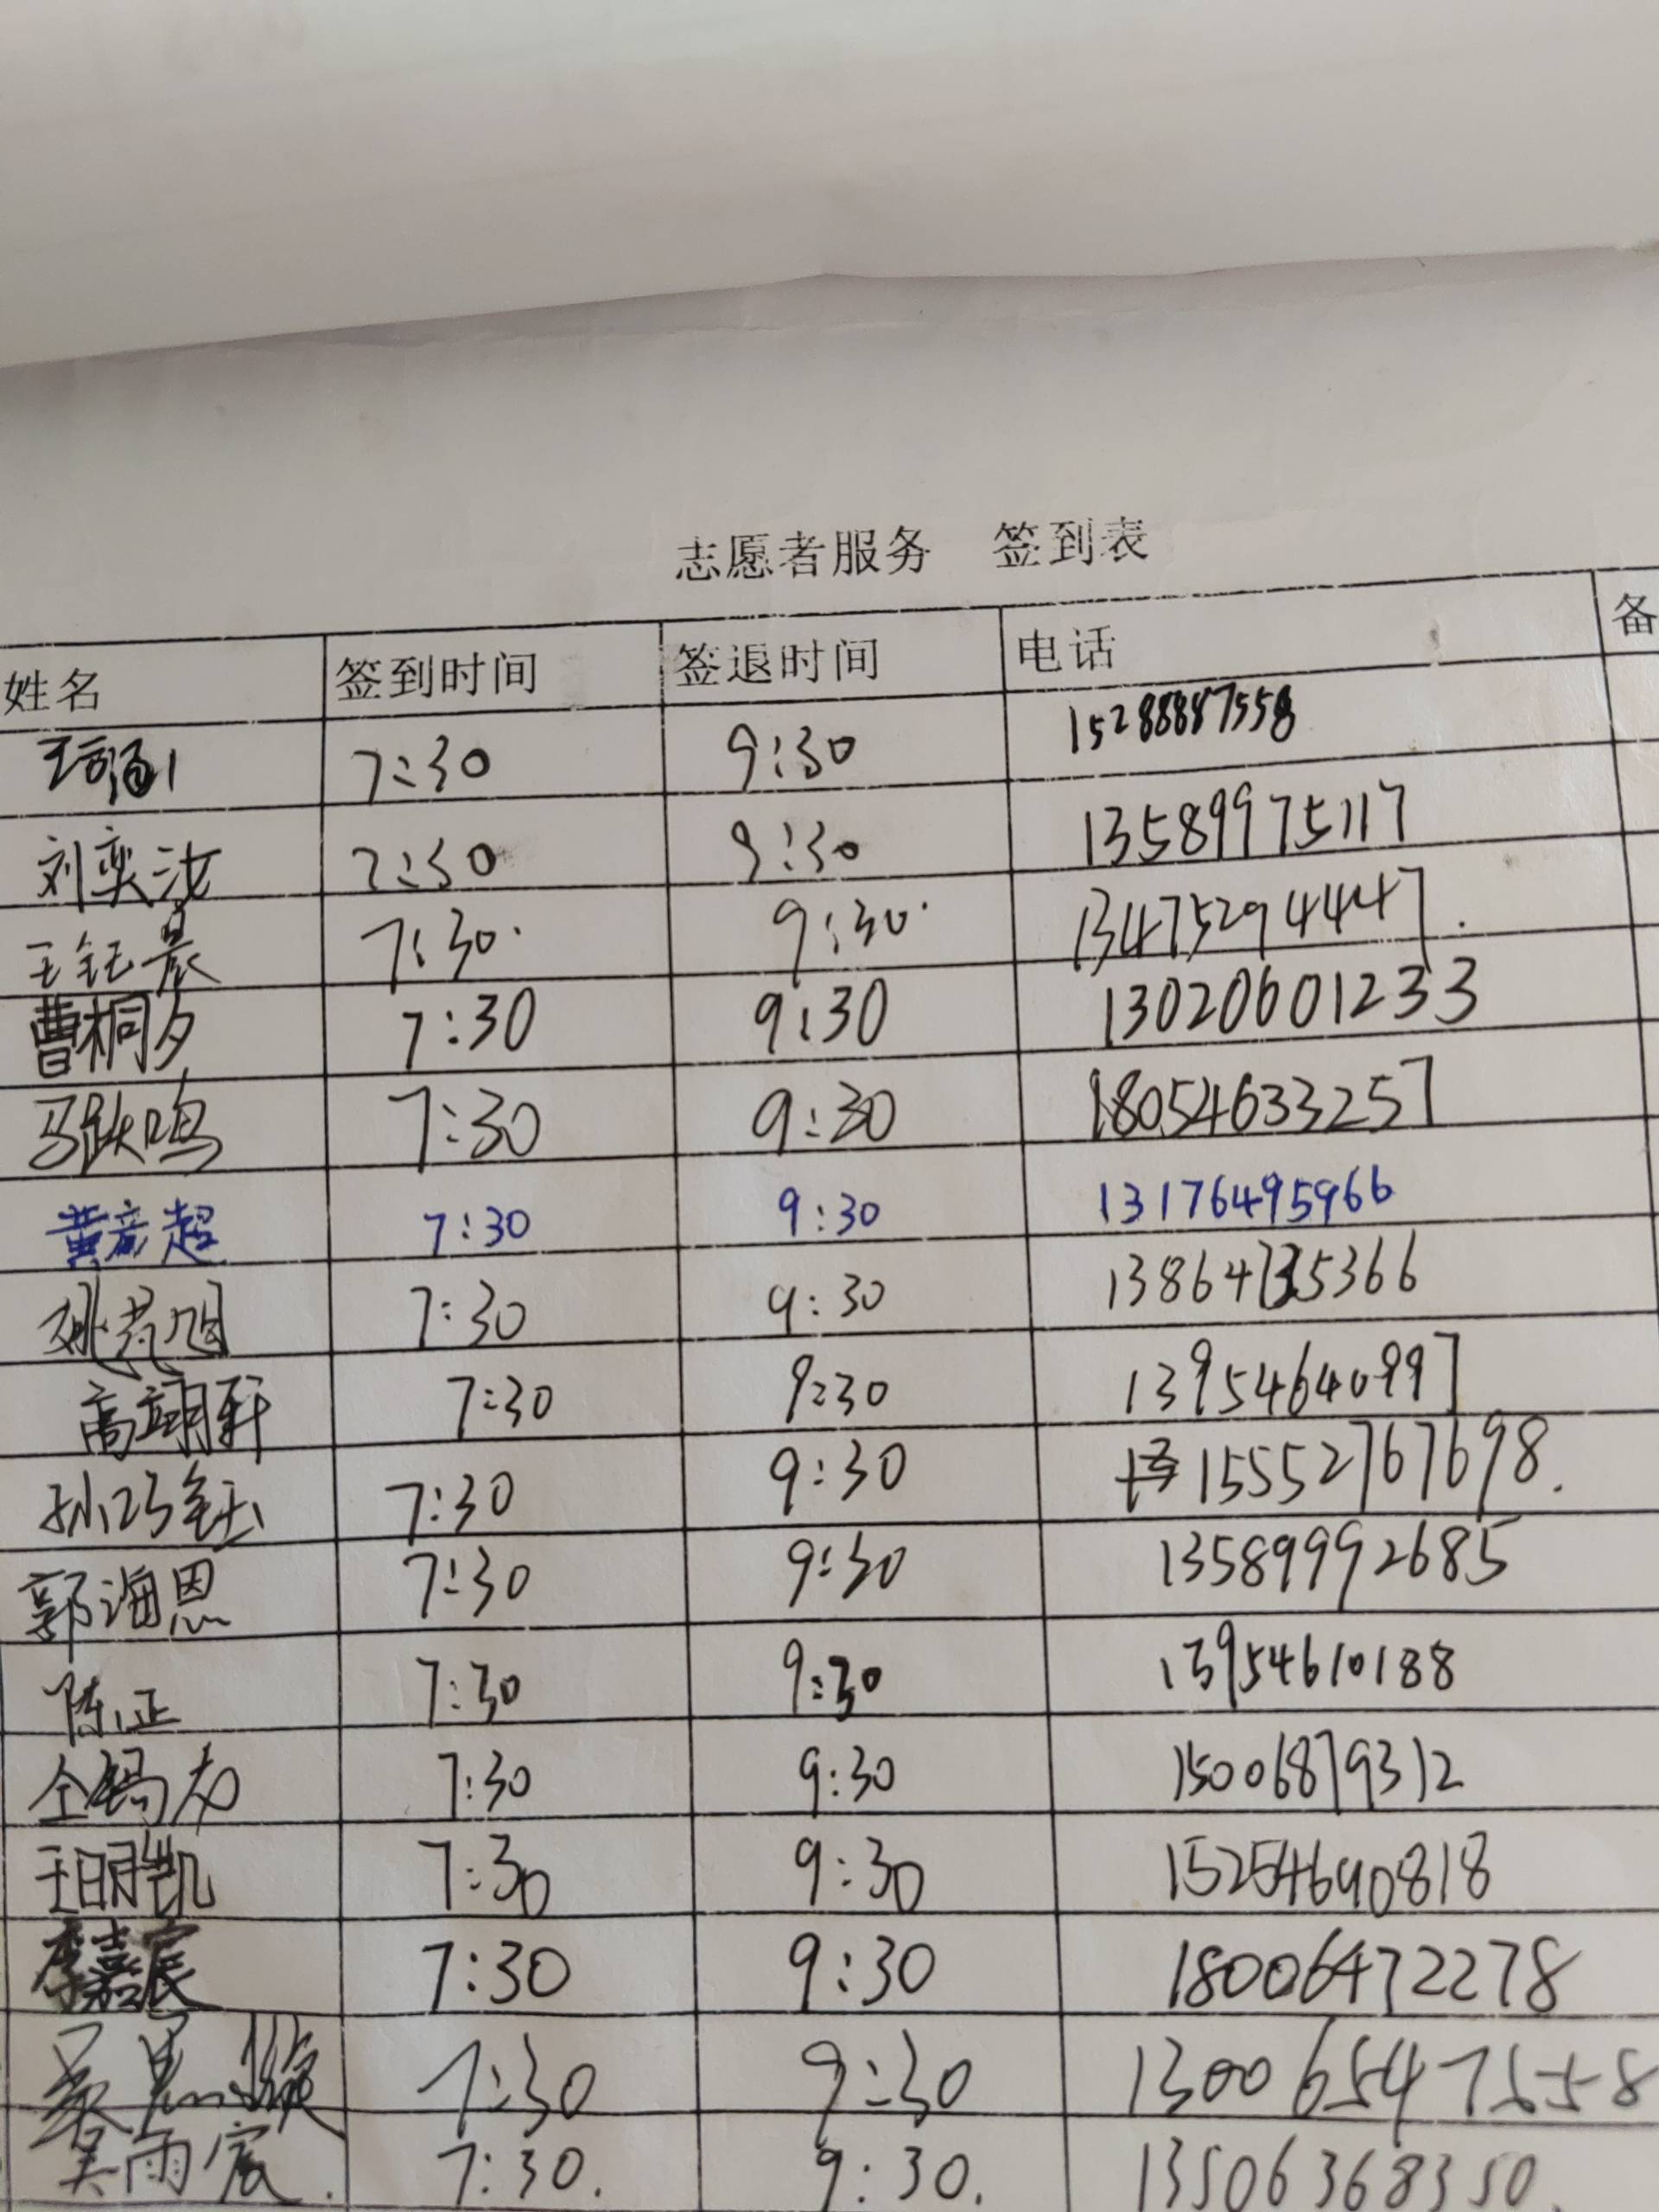 志愿者服务 签到表
姓名 签到时间 签退时间 电话 备
7:30 9:30 15288887558
刘奕汝 7:30 9:30 13589975117
王钰晨 7:30. 9:30. 13475294447.
曹桐夕 7:30 9:30 13020601233
马跃鸣 7:30 9:30 18054633257
黄彦超 7:30 9:30 13176495966
7:30 9:30
高翊轩 7:30 9:30 13954640997
孙巧钰 7:30 9:30 15552767698.
郭海恩 7:30 9:30 13589992685
陈正 7:30 9:30 13954610188
7:30 9:30 15006879312
王明凯 7:30 9:30 15254690818
李嘉宸 7:30 9:30 18006472278
7:30 9:30 13006547558
吴雨宸. 7:30. 9:30. 13506368350.